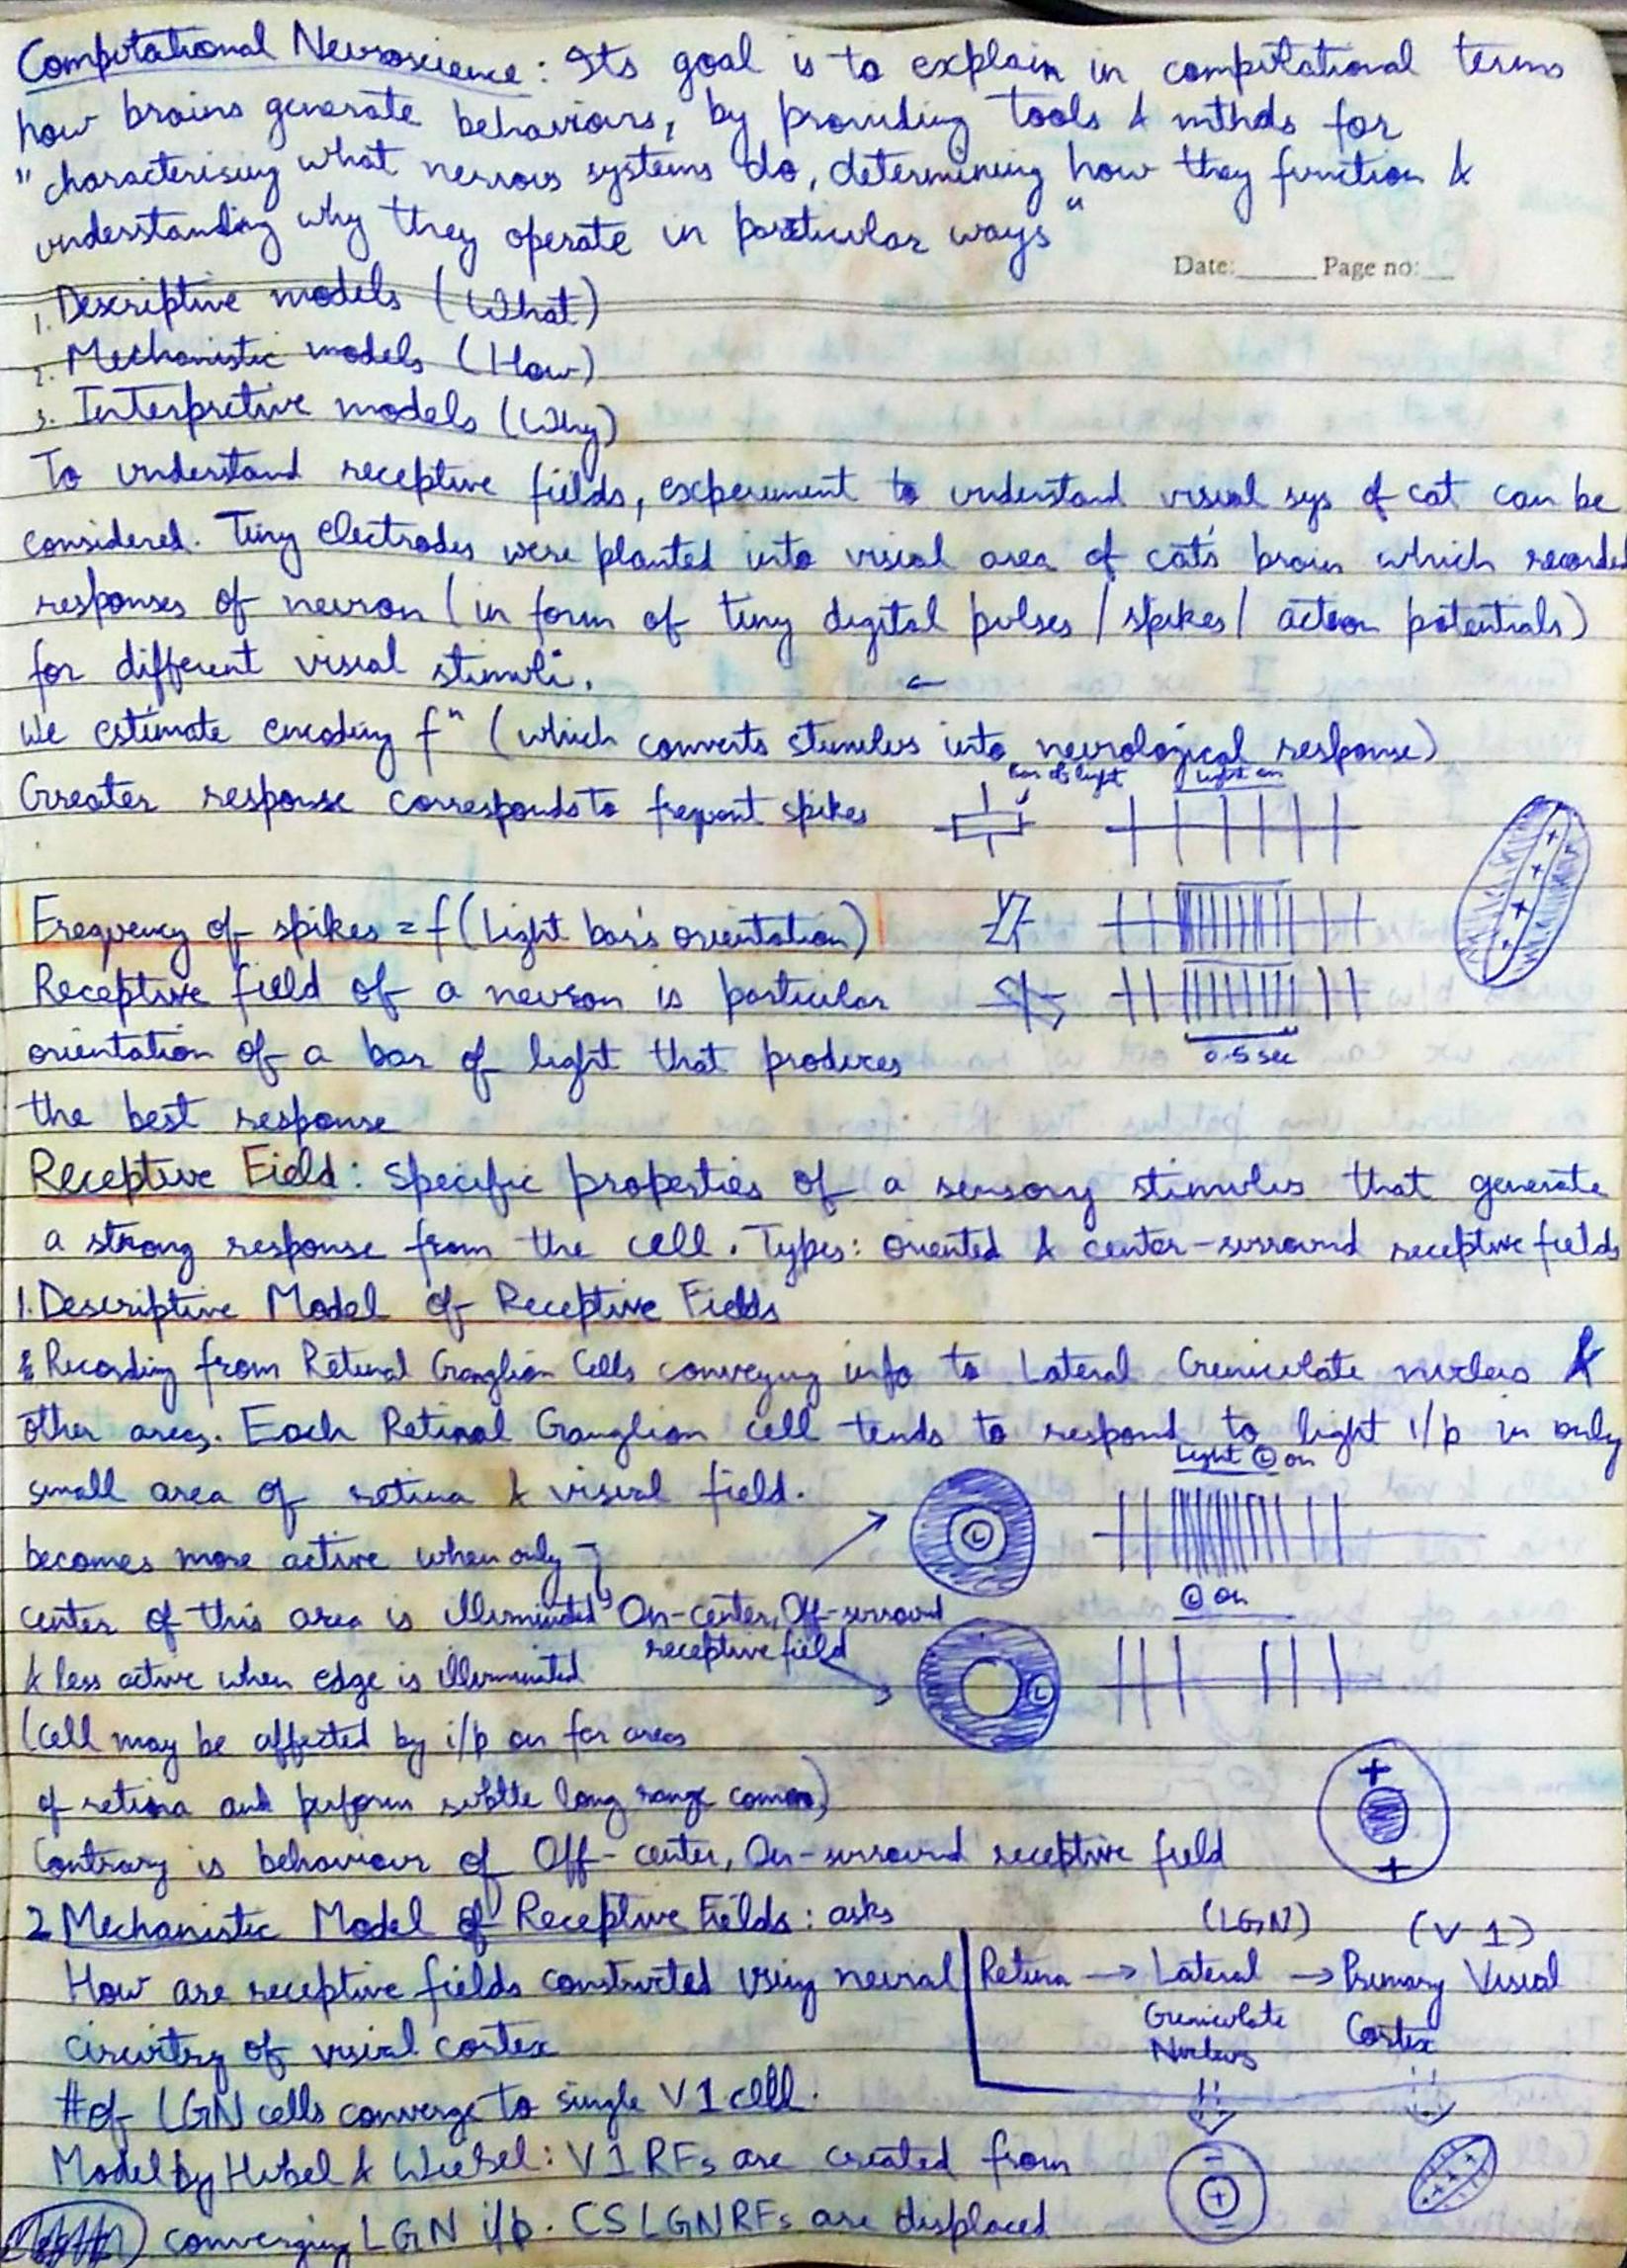 Computational Neuroscience: Its goal is to explain in computational terms
how brains generate behaviours, by providing tools & mthds for
"characterising what nervous systems do, determining how they function &
understanding why they operate in particular ways"
Date:______ Page no:___
1. Descriptive models (What)
2. Mechanistic models (How)
3. Interpretive models (Why)
To understand receptive fields, experiment to understand visual sys of cat can be
considered. Tiny electrodes were planted into visual area of cat's brain which recorded
responses of neuron (in form of tiny digital pulses / spikes / action potentials)
for different visual stimuli.
We estimate encoding fⁿ (which converts stimulus into neurological response)
Bar of light Light on
Greater response corresponds to frequent spikes
Frequency of spikes = f(Light bar's orientation)
Receptive field of a neuron is particular
orientation of a bar of light that produces
0.5 sec
the best response
Receptive Field: Specific properties of a sensory stimulus that generate
a strong response from the cell. Types: oriented & center-surround receptive fields
1. Descriptive Model of Receptive Fields
Recording from Retinal Ganglion Cells conveying info to Lateral Geniculate nucleus &
other areas. Each Retinal Ganglion cell tends to respond to light i/p in only
Light L on
small area of retina & visual field.
L
becomes more active when only
L on
center of this area is illuminated On-center, Off-surround
receptive field
& less active when edge is illuminated
L
(Cell may be affected by i/p on far areas
of retina and perform subtle long range commn)
+
+
Contrary is behaviour of Off-center, On-surround receptive field
2 Mechanistic Model of Receptive Fields: asks
(LGN) (V-1)
How are receptive fields constructed using neural
Retina → Lateral → Primary Visual
Geniculate Cortex
Nucleus
circuitry of visual cortex
# of LGN cells converge to single V1 cell.
Model by Hubel & Wiesel: V1 RFs are created from
converging LGN i/p. CS LGN RFs are displaced